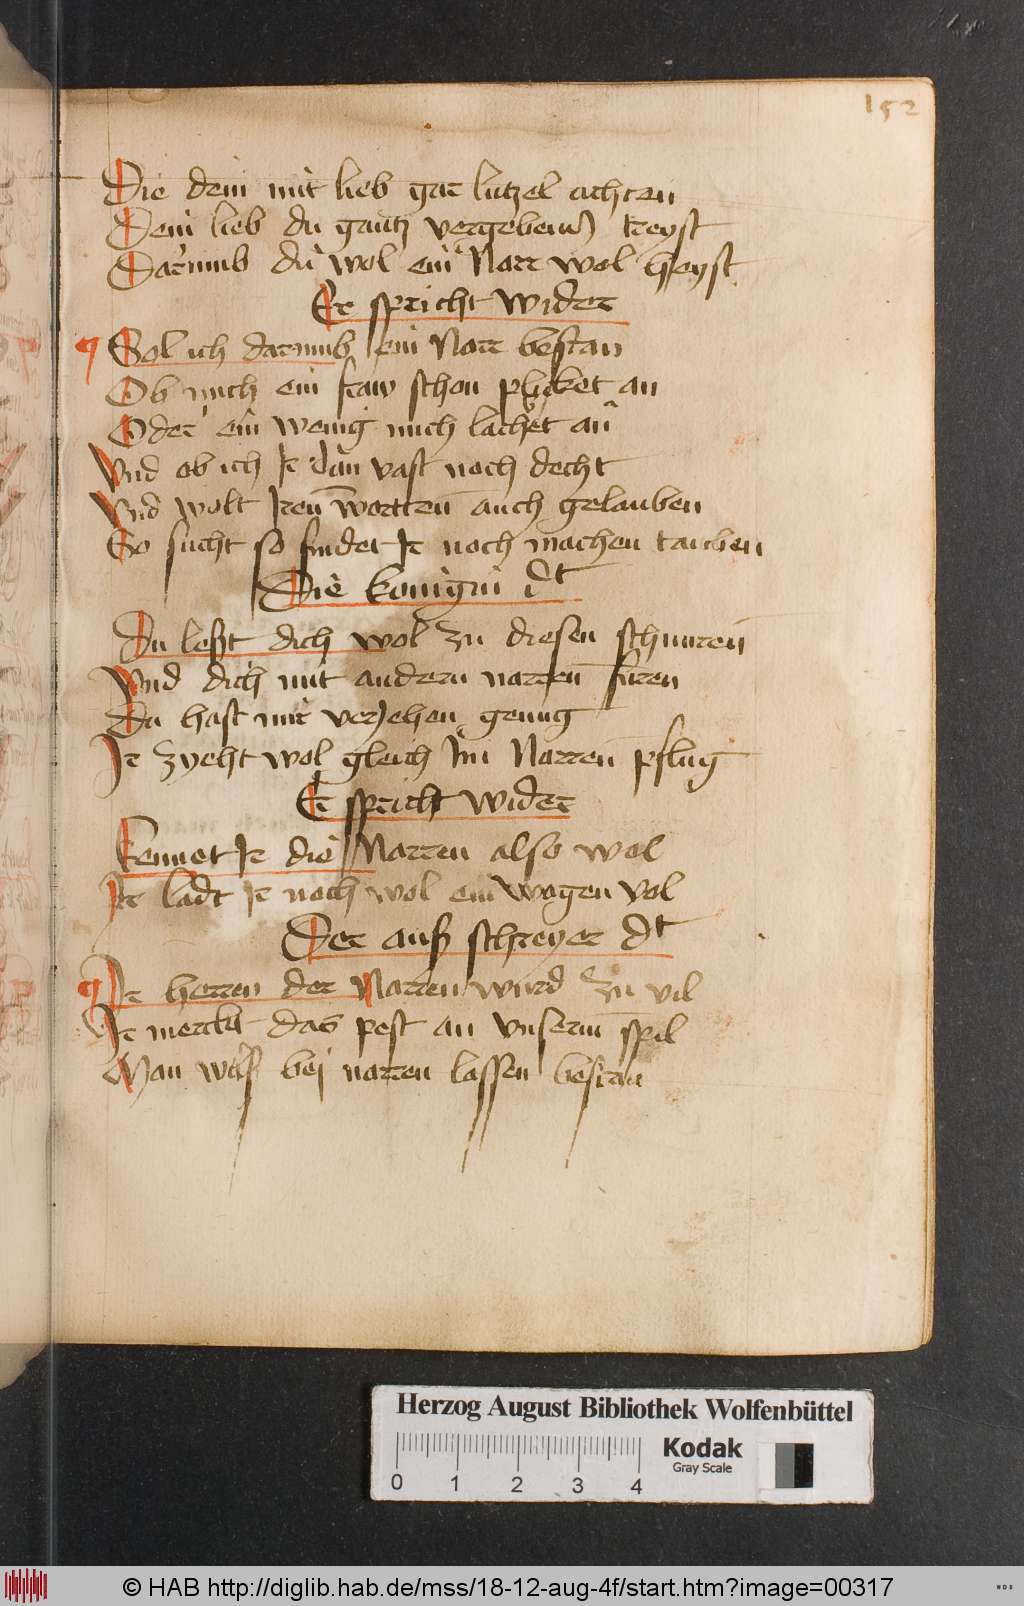 152
Die dein mit lieb gar lutzel achten
Dein lieb du gantz vergebens treyst
Darumb du wol ein Narr wol heyst
Er spricht wider
Sol ich darumb ein Narr bestan
Ob mich ein fraw schon plicket an
Oder ein wenig mich lachet an
Vnd ob ich Ir dan vast noch decht
Vnd wolt Iren wortten auch gelauben
So sucht so findet Ir noch machen tauben
Die konigin dt
Du leßt dich wol zu diesen schnuren
Vnd dich mit andern narren furen
Du hast mir verjehen genug
Ir zyeht wol gleich Im Narren pflug
Er spricht wider
Kennet Ir die Narren also wol
Ir ladt Ir noch wol ein wagen vol
Der auß schreyer dt
Ir herren der Narren wurd zu vil
Ir merckt das pest an vnserm spil
Man wils bej narren lassen bestan
Herzog August Bibliothek Wolfenbüttel
Kodak
Gray Scale
0 1 2 3 4
© HAB http://diglib.hab.de/mss/18-12-aug-4f/start.htm?image=00317